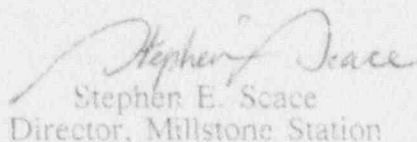 Stephen Scace
Stephen E. Scace
Director, Millstone Station